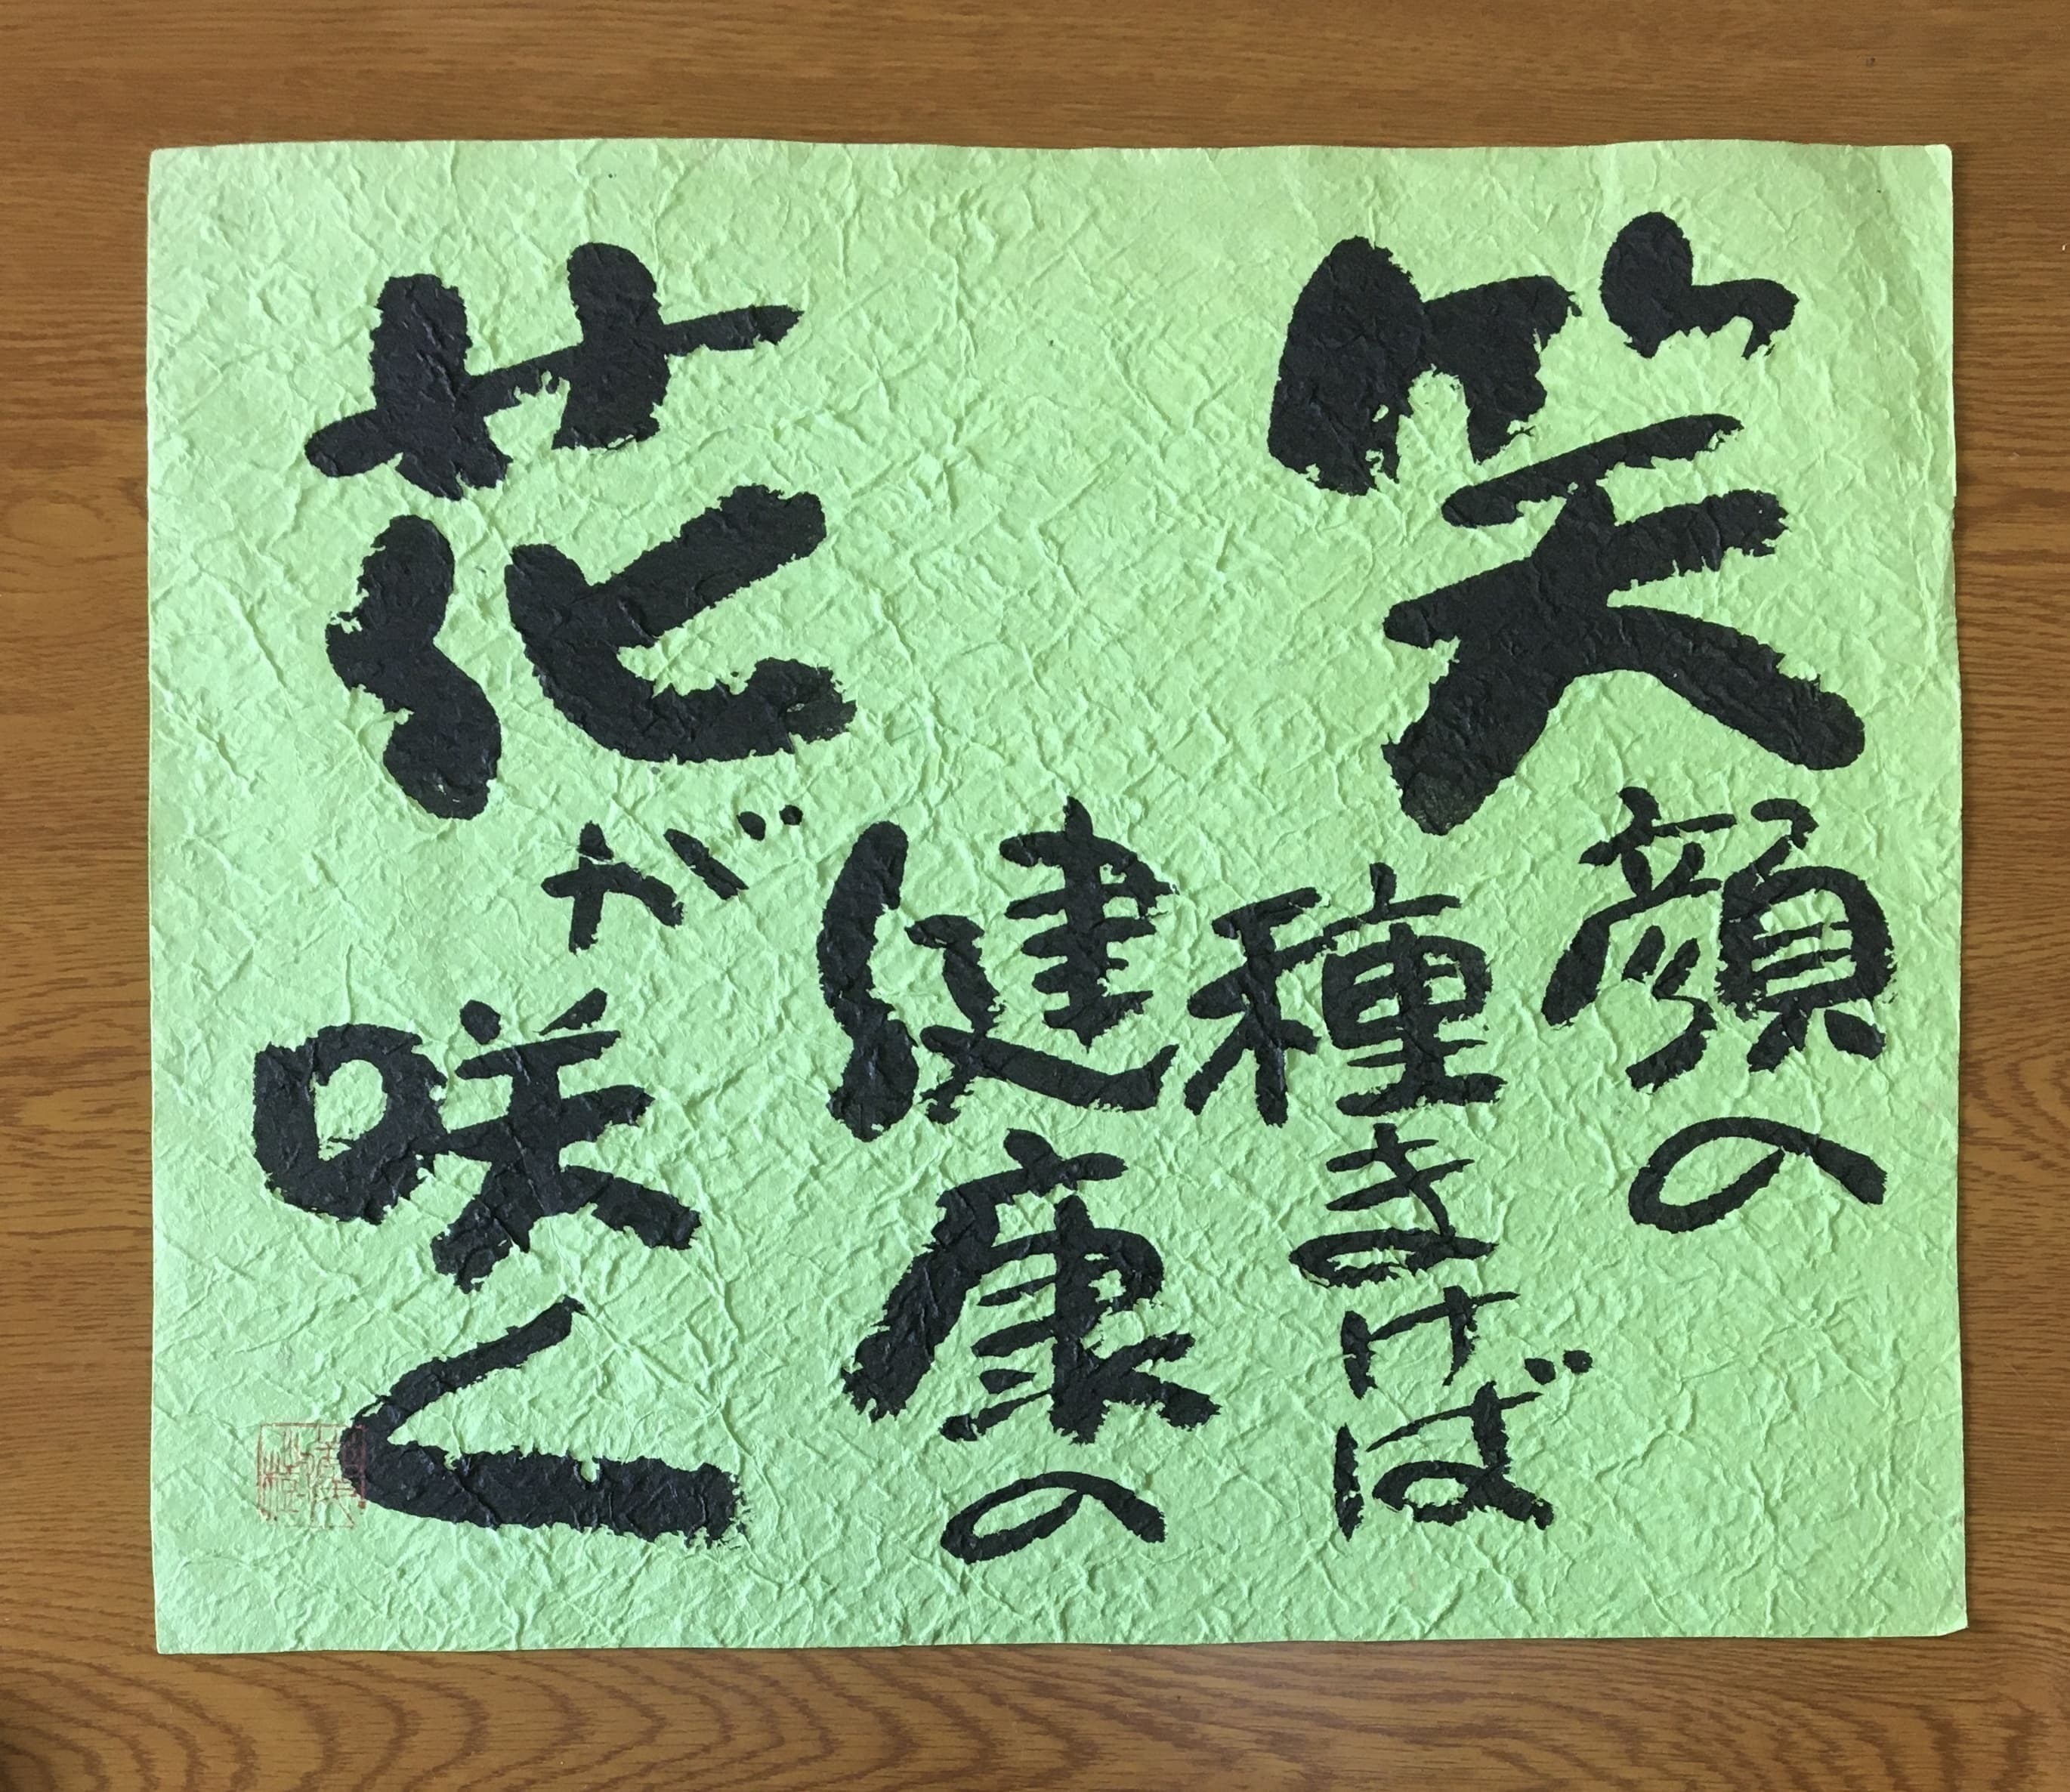 笑顔の
種まけば
健康の
花が咲く